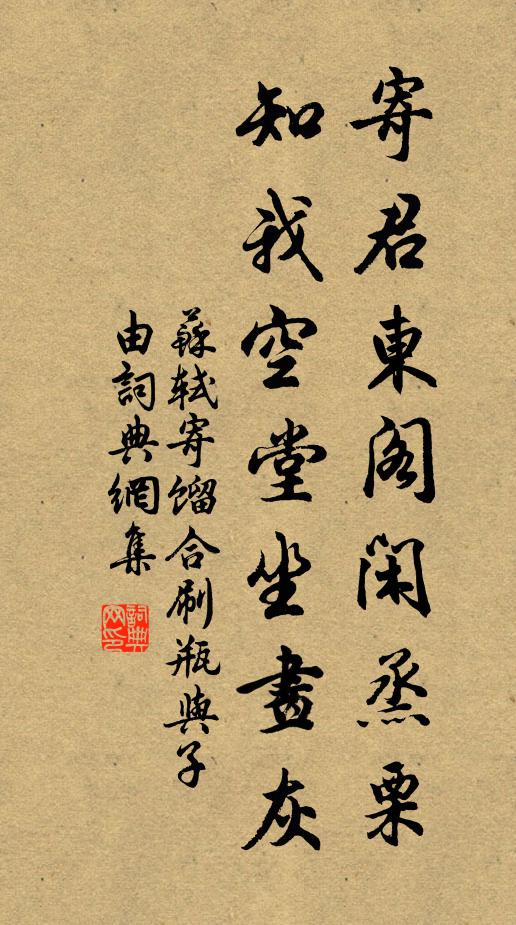 寄君東閣閑蒸栗
知我空堂坐畫灰
蘇軾寄餾合刷瓶與子
由詞典網集
詞典網印